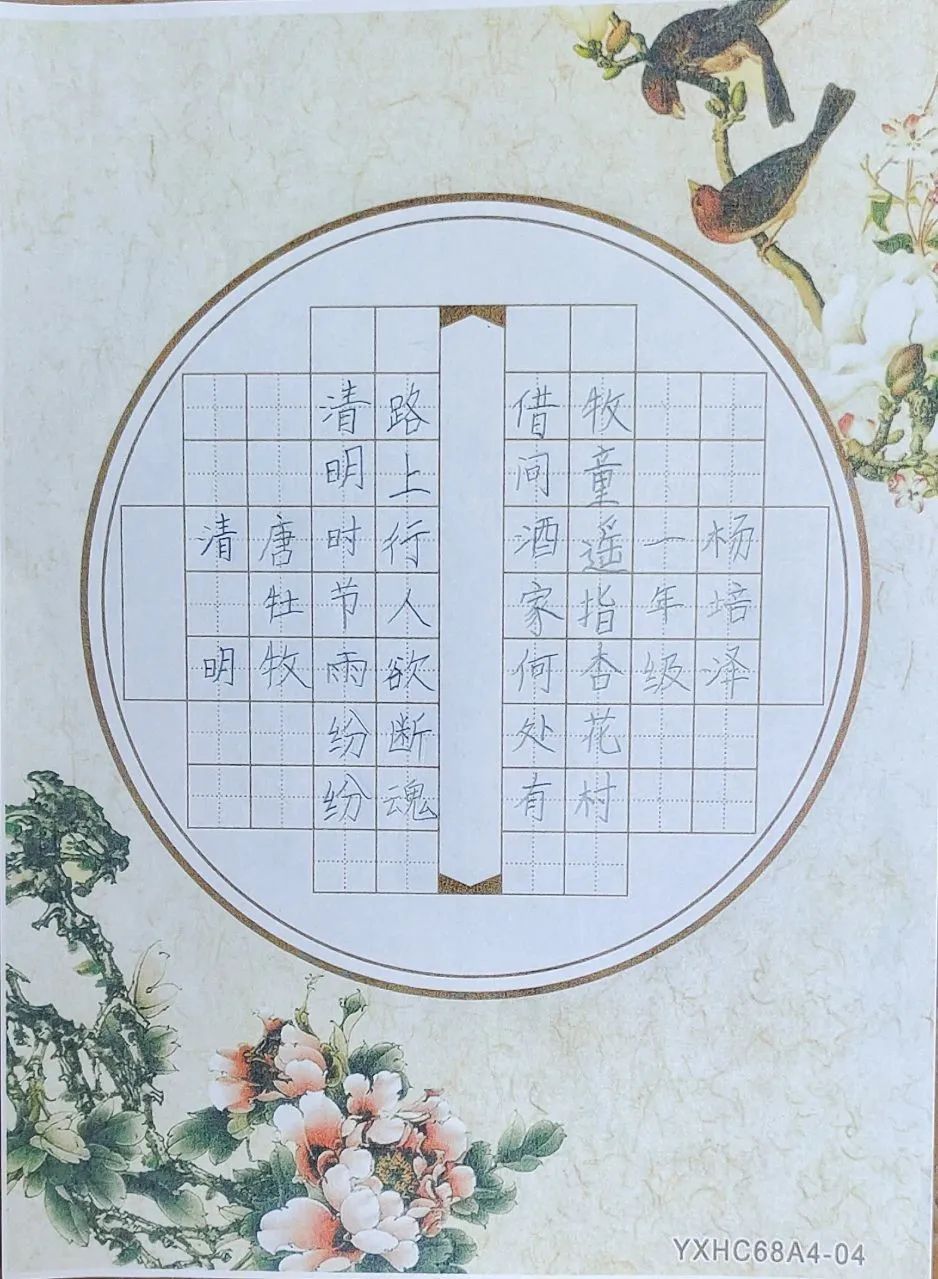 清明
唐牡牧
清明时节雨纷纷
路上行人欲断魂
借问酒家何处有
牧童遥指杏花村
一年级
杨培泽
YXHC68A4-04